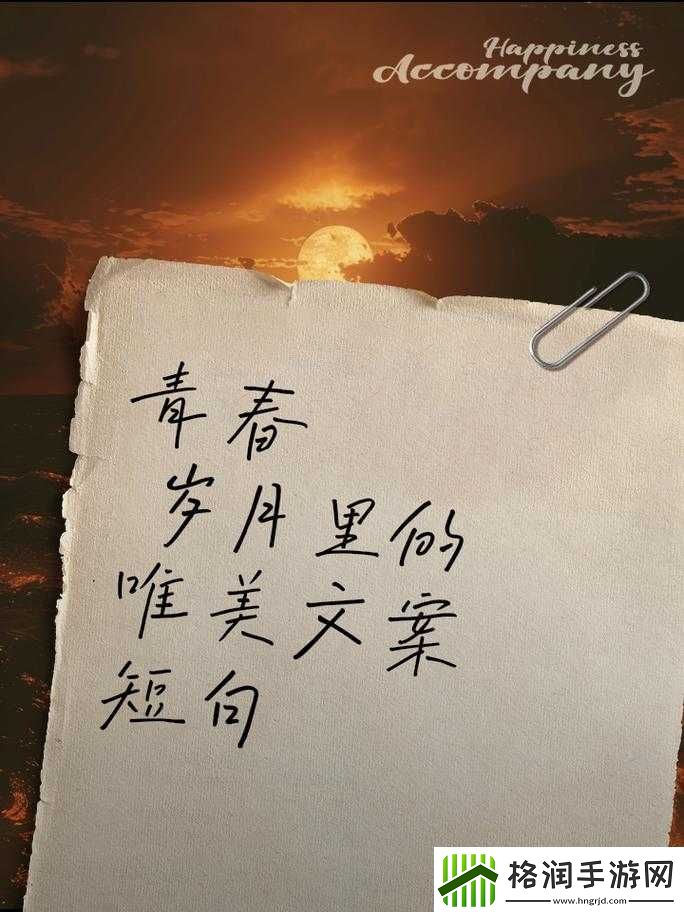 Happiness
Accompany
青春
岁月里的
唯美文案
短句
格润手游网
www.hngrjd.com